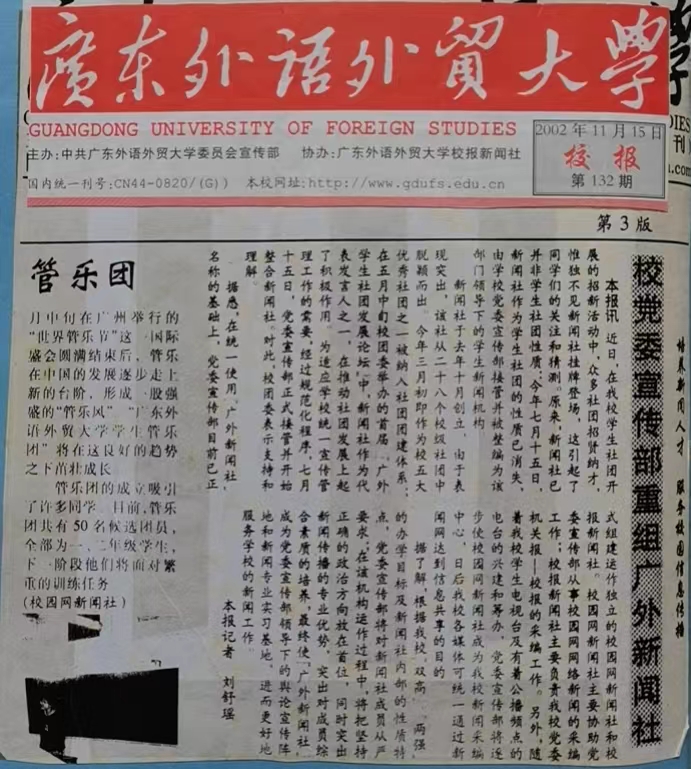 廣东外语外贸大學
GUANGDONG UNIVERSITY OF FOREIGN STUDIES
主办:中共广东外语外贸大学委员会宣传部 协办:广东外语外贸大学校报新闻社
国内统一刊号:CN44-0820/(G)) 本校网址:http://www.gdufs.edu.cn
2002年11月15日
校报
第132期
第3版
培养新闻人才 服务校园信息传播
校党委宣传部重组广外新闻社
本报讯 近日,在我校学生社团开
展的招新活动中,众多社团招贤纳才,
惟独不见新闻社挂牌登场,这引起了
同学们的关注和猜测。原来,新闻社已
并非学生社团性质:今年七月十五日,
新闻社作为学生社团的性质已消失,
由学校党委宣传部接管并被整编为该
部门领导下的学生新闻机构
新闻社于去年十月创立,由于表
现突出,该社从二十八个校级社团中
脱颖而出。今年三月初即作为校五大
优秀社团之一被纳入社团团建体系;
在五月中旬校团委举办的首届“广外
学生社团发展论坛”中,新闻社作为代
表发言人之一,在推动社团发展上起
了积极作用。为适应学校统一宣传管
理工作的需要,经过规范化程序,七月
十五日,党委宣传部正式接管并开始
整合新闻社。对此,校团委表示支持和
理解。
据悉,在统一使用“广外新闻社”
名称的基础上,党委宣传部目前已正
式组建运作独立的校园网新闻社和校
报新闻社。校园网新闻社主要协助党
委宣传部从事校园网网络新闻的采编
工作;校报新闻社主要负责我校党委
机关报—校报的采编工作。另外,随
着我校学生电视台及有着公播频点的
电台的兴建和筹办,党委宣传部将逐
步使校园网新闻社成为我校新闻采编
中心,日后我校各媒体可统一通过新
闻网达到信息共享的目的
据了解,根据我校“双高”、“两强”
的办学目标及新闻社内部的性质特
点,党委宣传部将对新闻社成员从严
要求;在该机构运作过程中,将把坚持
正确的政治方向放在首位,同时突出
新闻传播的专业优势,突出对成员综
合素质的培养,最终使“广外新闻社”
成为党委宣传部领导下的舆论宣传阵
地和新闻专业实习基地,进而更好地
服务学校的新闻工作。
本报记者 刘舒瑶
管乐团
月中旬在广州举行的
“世界管乐节”这一国际
盛会圆满结束后,管乐
在中国的发展逐步走上
新的台阶,形成一股强
盛的“管乐风”。“广东外
语外贸大学学生管乐
团”将在这良好的趋势
之下茁壮成长
管乐团的成立吸引
了许多同学。目前,管乐
团共有50名候选团员,
全部为一、二年级学生,
下一阶段他们将面对繁
重的训练任务
(校园网新闻社)